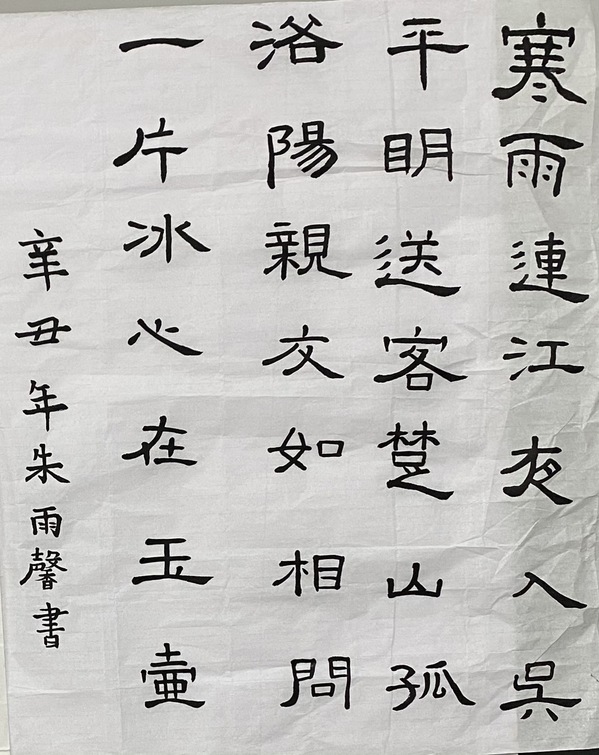 寒雨連江夜入吳
平眀送客楚山孤
浴陽親友如相問
一片冰心在玉壷
辛丑年朱雨馨書